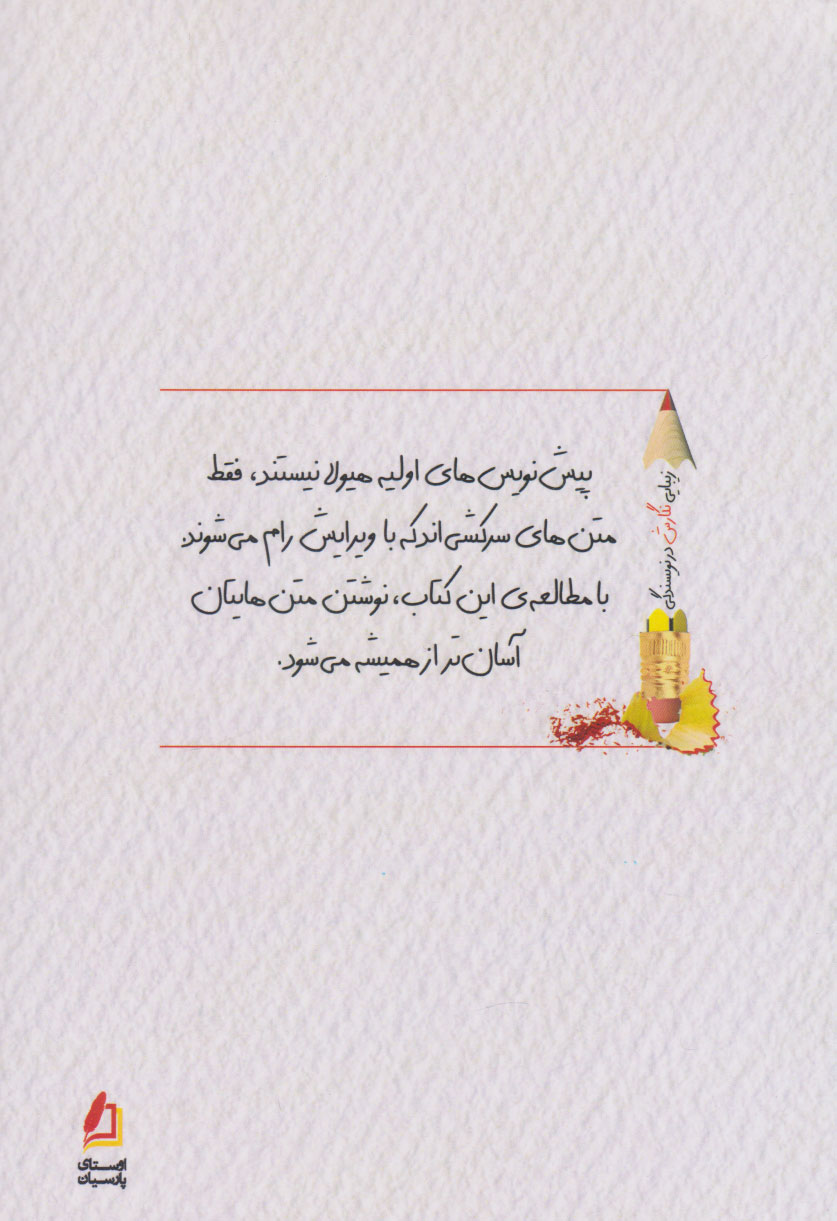 پیش‌نویس‌های اولیه هیولا نیستند، فقط
متن‌های سرکشی‌اند که با ویرایش رام می‌شوند.
با مطالعه‌ی این کتاب، نوشتن متن‌هایتان
آسان‌تر از همیشه می‌شود.
زیبایی نگارش در نویسندگی
اوستای
پارسیان